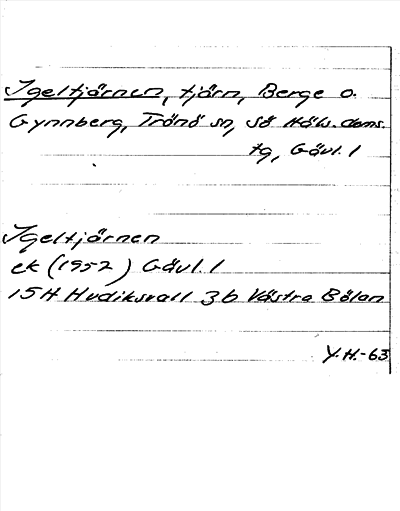 Igeltjärnen, tjärn, Berge o.
Gynnberg, Trönö sn, Sö Häls. doms.
tg, Gävl. l
Igeltjärnen
ek (1952) Gävl. l
15H Hudiksvall 3b Västra Bölan
Y.H.-63